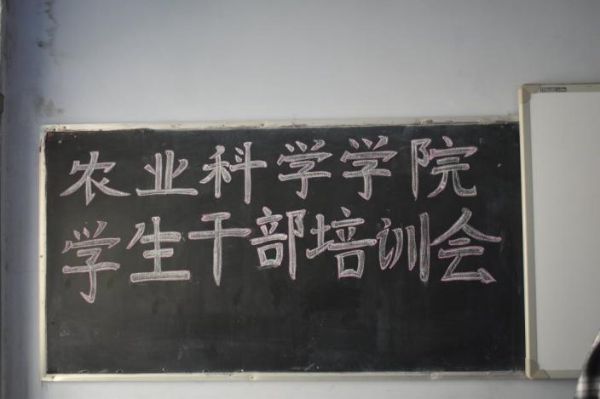 农业科学学院
学生干部培训会